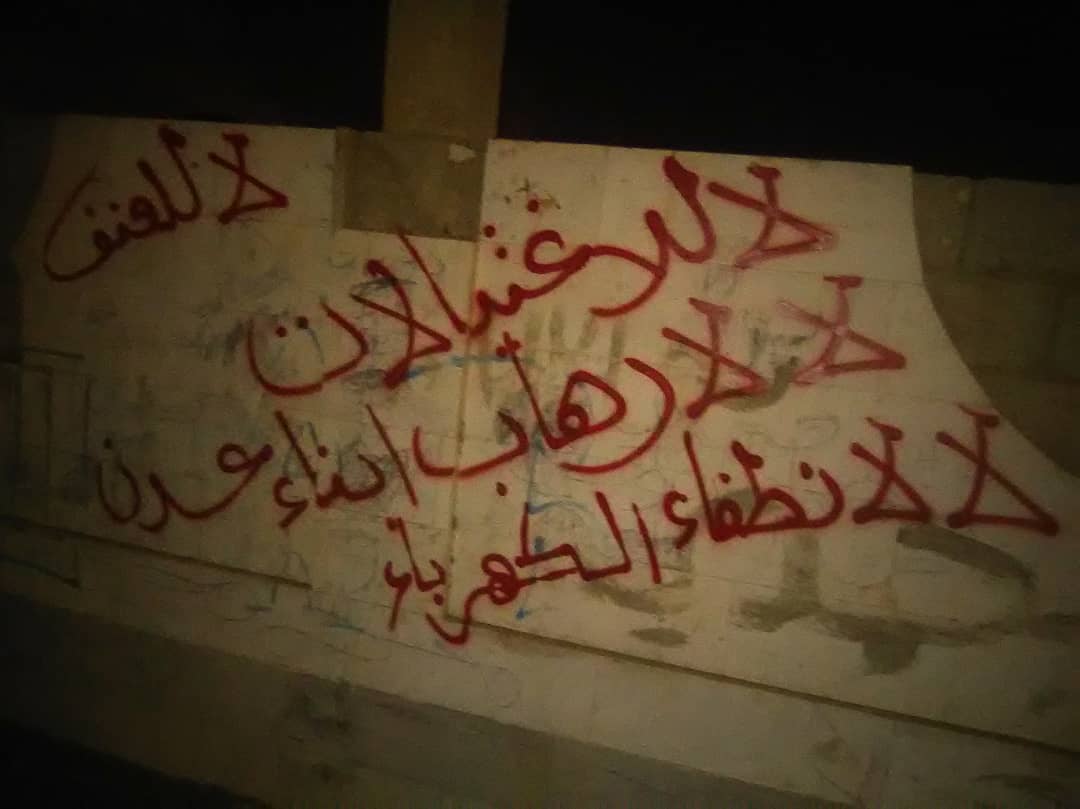 لا للاغتيالات
لا للعنف
لا لارهاب ابناء عدن
لا لانطفاء الكهرباء